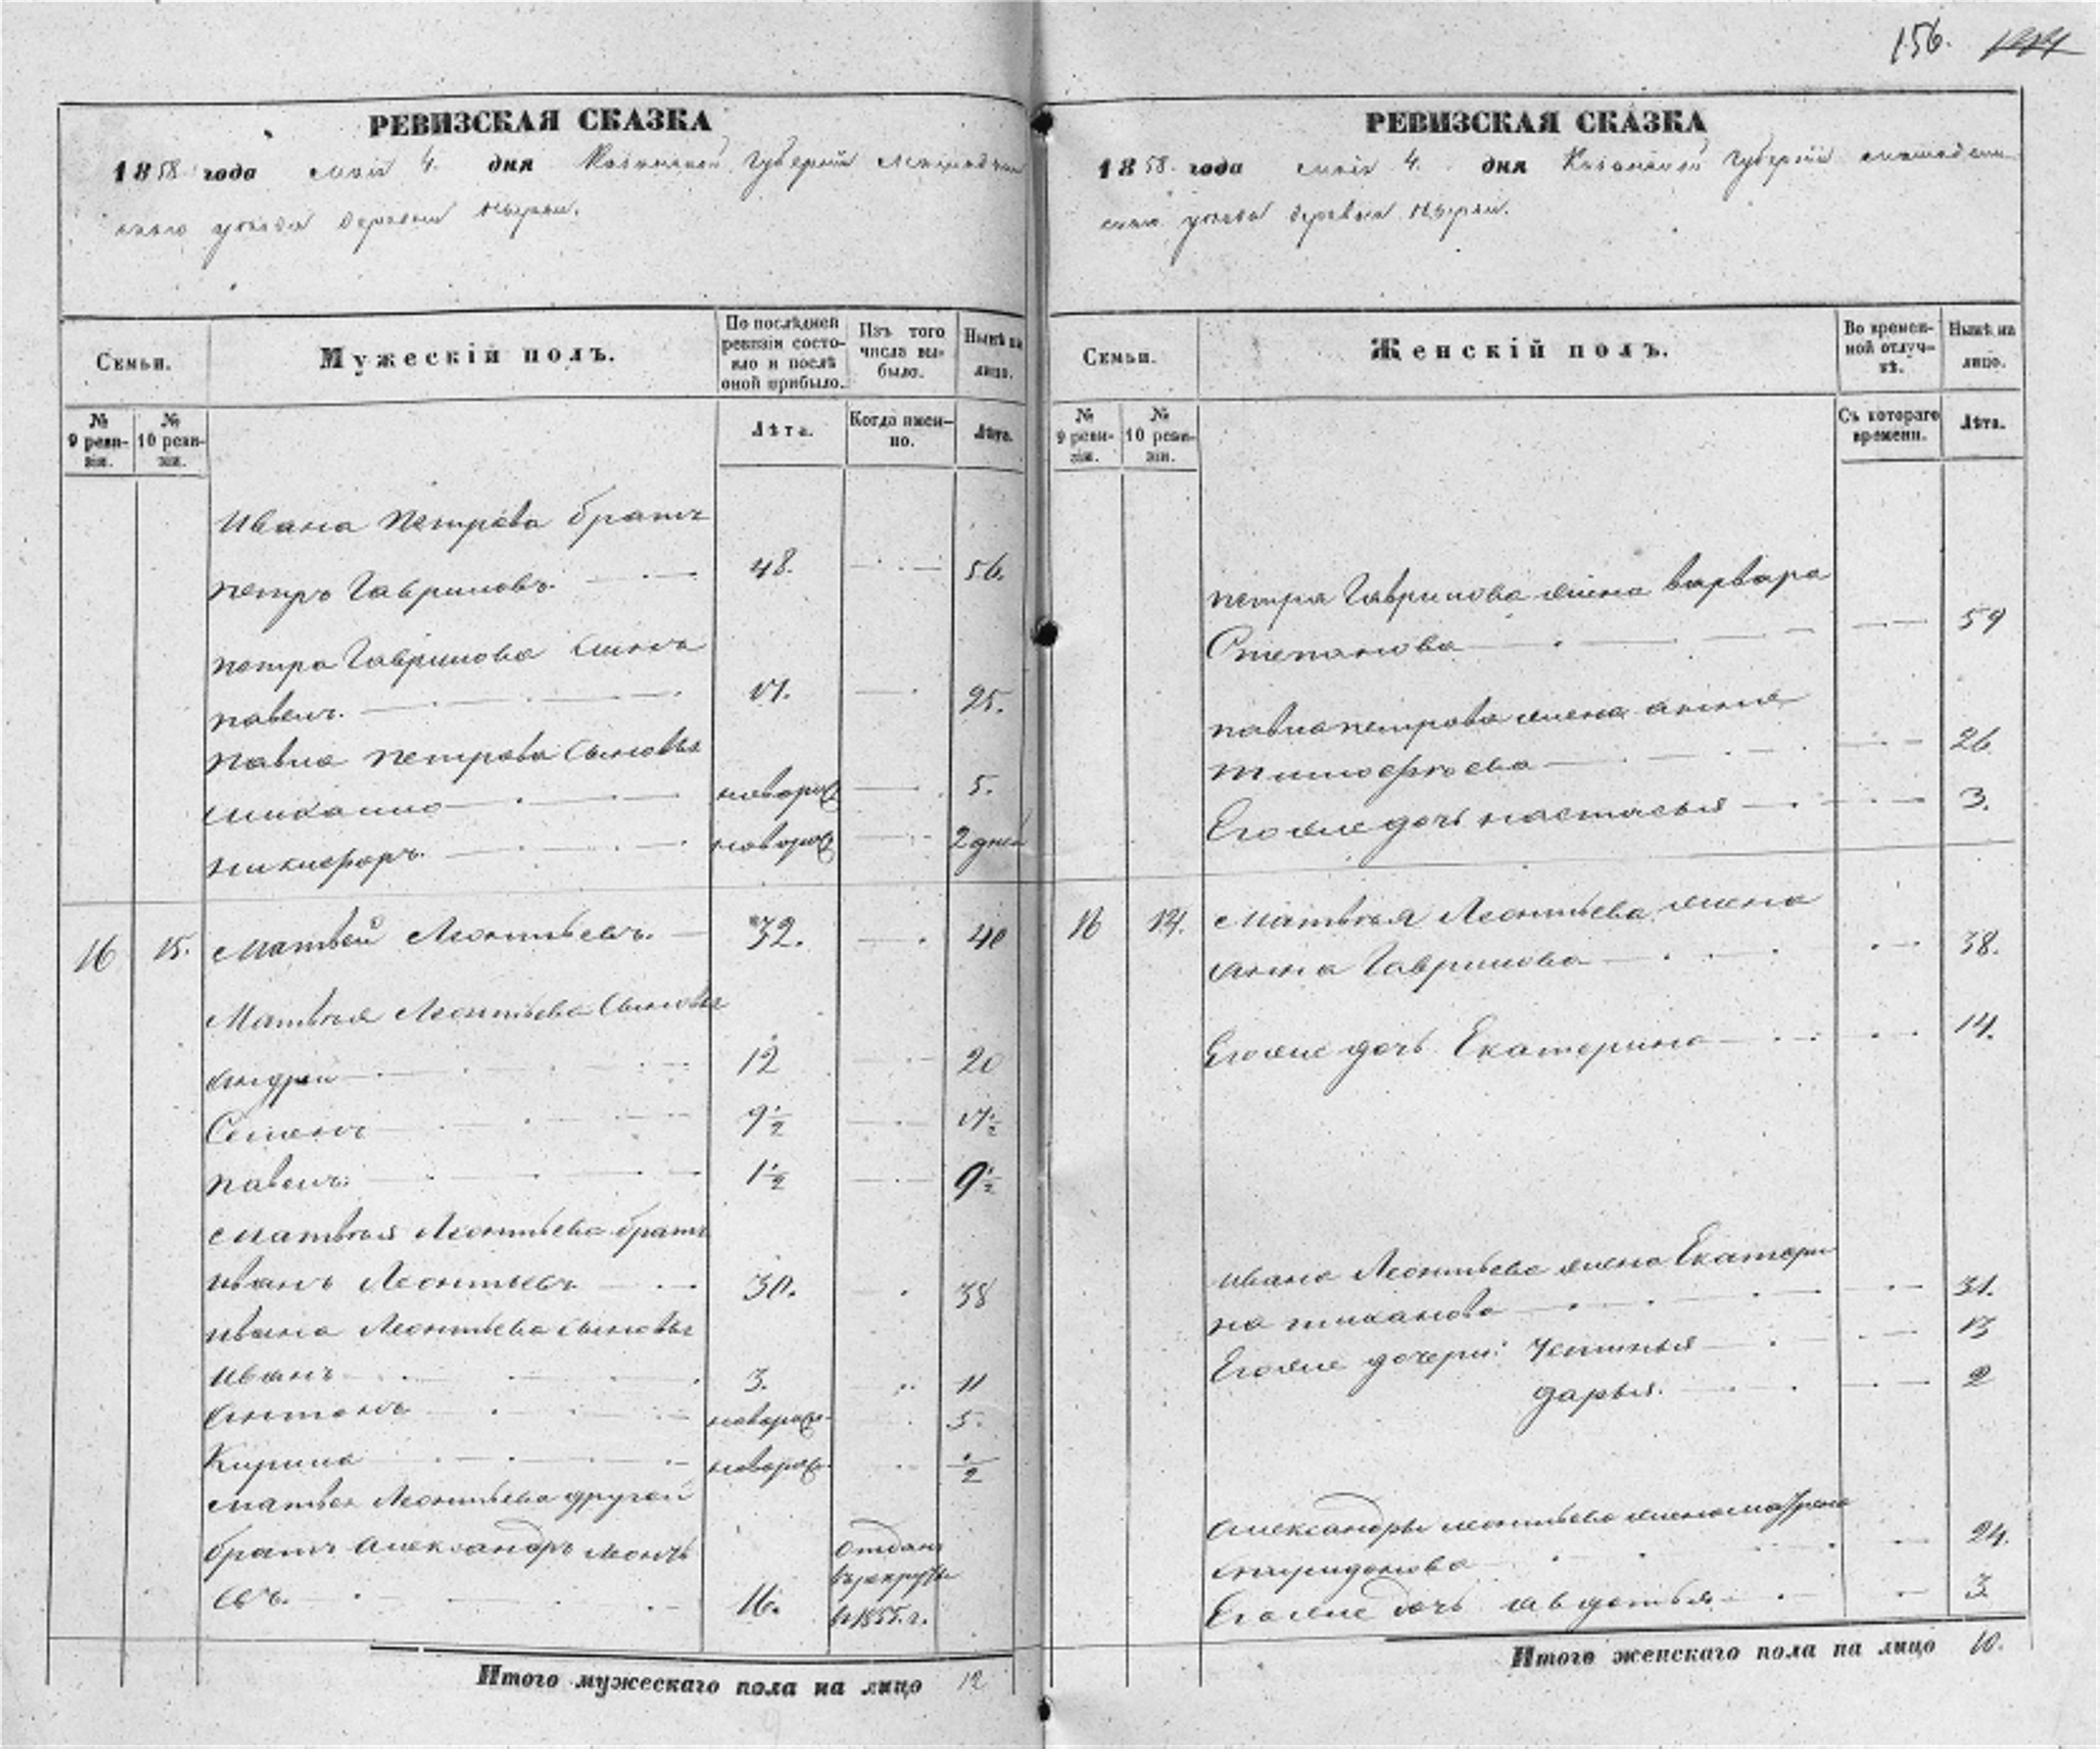 156.
РЕВИЗСКАЯ СКАЗКА
1858 года мая 4. дня Казанской Губернии Мамадыш
скаго уезда деревни
Семьи.
Мужескій полъ.
По послѣдней ревизіи состояло и послѣ оной прибыло.
Изъ того числа выбыло.
Нынѣ на лицо.
№ 9 ревизіи.
№ 10 ревизіи.
Лѣта.
Когда именно.
Лѣта.
Ивана Петрова братъ
Петръ Гавриловъ 48. 56.
Петра Гаврилова сынъ
Павелъ. 17. 25.
Павла Петрова сыновья
Михайло новорож 5.
Никифоръ. новорож 2 дней
16 15. Матвей Леонтьевъ. 32. 40
Матвѣя Леонтьева сыновья
Андрей 12 20
Семенъ 9½ 17½
Павелъ. 1½ 9½
Матвѣя Леонтьева братъ
Иванъ Леонтьевъ 30. 38
Ивана Леонтьева сыновья
Иванъ 3. 11
Антонъ новорож. 5.
Кирила новорож. ½
Матвея Леонтьева другой
братъ Александръ Леонть
евъ. 16. Отданъ в рекруты в 1855. г.
Итого мужескаго пола на лицо 12
РЕВИЗСКАЯ СКАЗКА
1858. года мая 4. дня Казанской Губернии Мамадыш
скаго уезда деревни
Семьи.
Женскій полъ.
Во временной отлучкѣ.
Нынѣ на лицо.
№ 9 ревизіи.
№ 10 ревизіи.
Съ котораго времени.
Лѣта.
Петра Гаврилова жена Варвара
Степанова 59
Павла Петрова жена Анна
Тимофѣева 26
Его же дочь Настасья 3.
16 14. Матвѣя Леонтьева жена
Анна Гаврилова 38.
Его же дочь Екатерина 14.
Ивана Леонтьева жена Екатери
на Тиханова 31.
Его же дочери: Устинья 13
Дарья. 2
Александры Леонтьева жена Матрена
Спиридонова 24.
Его же дочь Авдотья 3.
Итого женскаго пола на лицо 10.